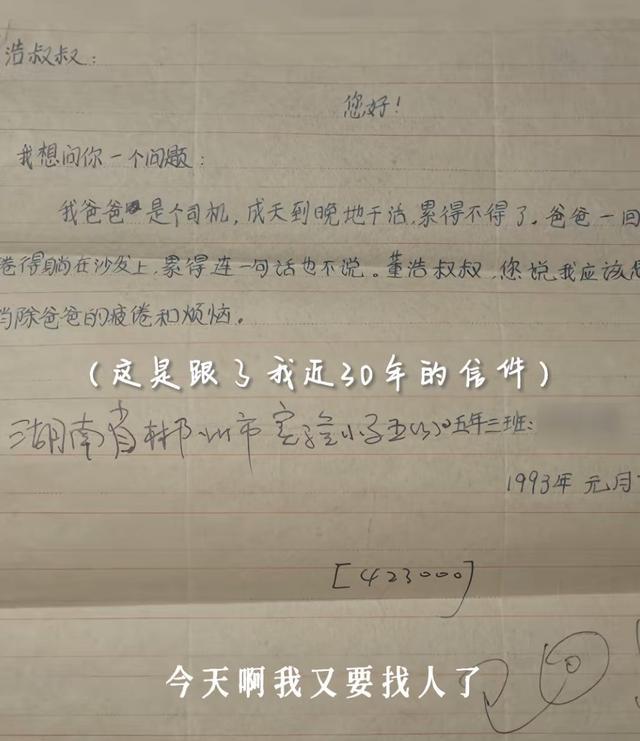 浩叔叔:
您好!
我想问你一个问题:
我爸爸是个司机,成天到晚地干活,累得不得了。爸爸一回
倦得躺在沙发上,累得连一句话也不说。董浩叔叔,您说我应该
除爸爸的疲倦和烦恼。
(这是跟了我近30年的信件)
湖南省郴州市实验小学五(3)五年三班:
1993年元月
[423000]
今天啊我又要找人了